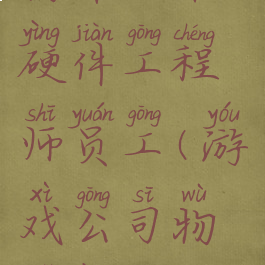 yìng jiàn gōng chéng
硬件工程
shī yuán gōng yóu
师员工(游
xì gōng sī wù
戏公司物